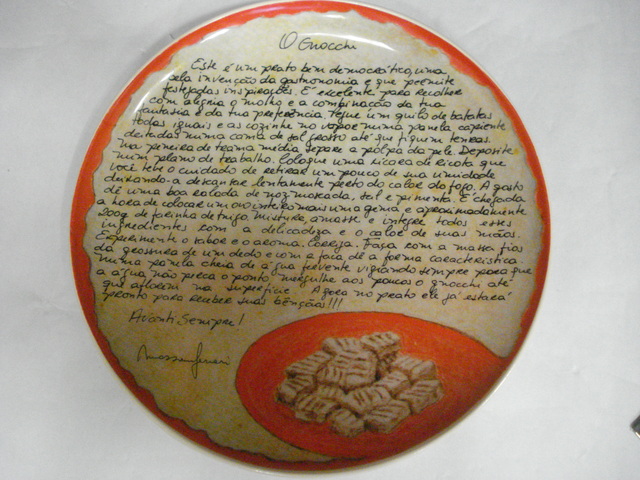 O Gnocchi
Este é um prato bem democrático, uma
bela invenção da gastronomia e que permite
festejadas inspirações. É excelente para recolher
com alegria o molho e a combinação da tua
fantasia e da tua preferência. Pegue um quilo de batatas
todas iguais e as cozinhe no vapor numa panela capiente
deitadas numa cama de sal grosso até que fiquem tenras.
Na peneira de trama média, separe a polpa da pele. Deposite
num plano de trabalho. Coloque uma xícara de ricota que
você teve o cuidado de retirar um pouco de sua umidade
deixando-a descansar lentamente perto do calor do fogo. A gosto
dê uma boa ralada de noz-moscada, sal e pimenta. É chegada
a hora de colocar um ovo inteiro mais uma gema e aproximadamente
200g de farinha de trigo. Misture, amasse e integre todos esses
ingredientes com a delicadeza e o calor de suas mãos.
Experimente o sabor e o aroma. Corrija. Faça com a massa fios
da grossura de um dedo e com a faca dê a forma característica.
Numa panela cheia de água fervente vigiando sempre para que
a água não perca o ponto, mergulhe aos poucos o gnocchi até
que aflorem na superfície. Agora no prato ele já estará
pronto para receber suas bênçãos!!!
Avanti Sempre!